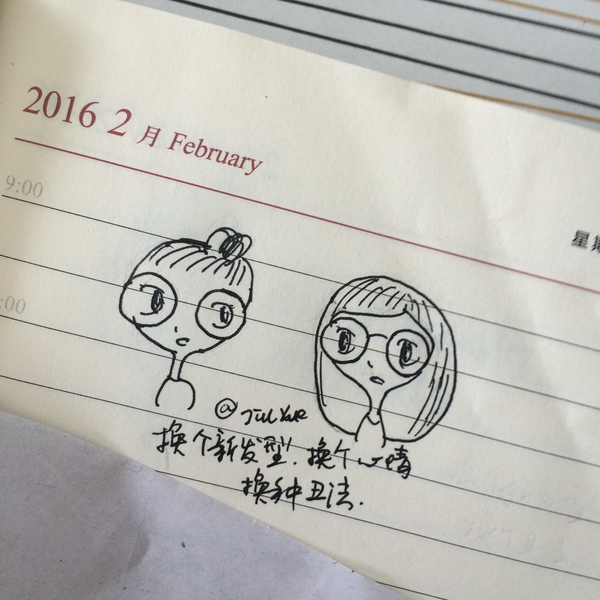 2016 2 月 February
星期
9:00
:00
换个新发型.换个心情
换种丑法.